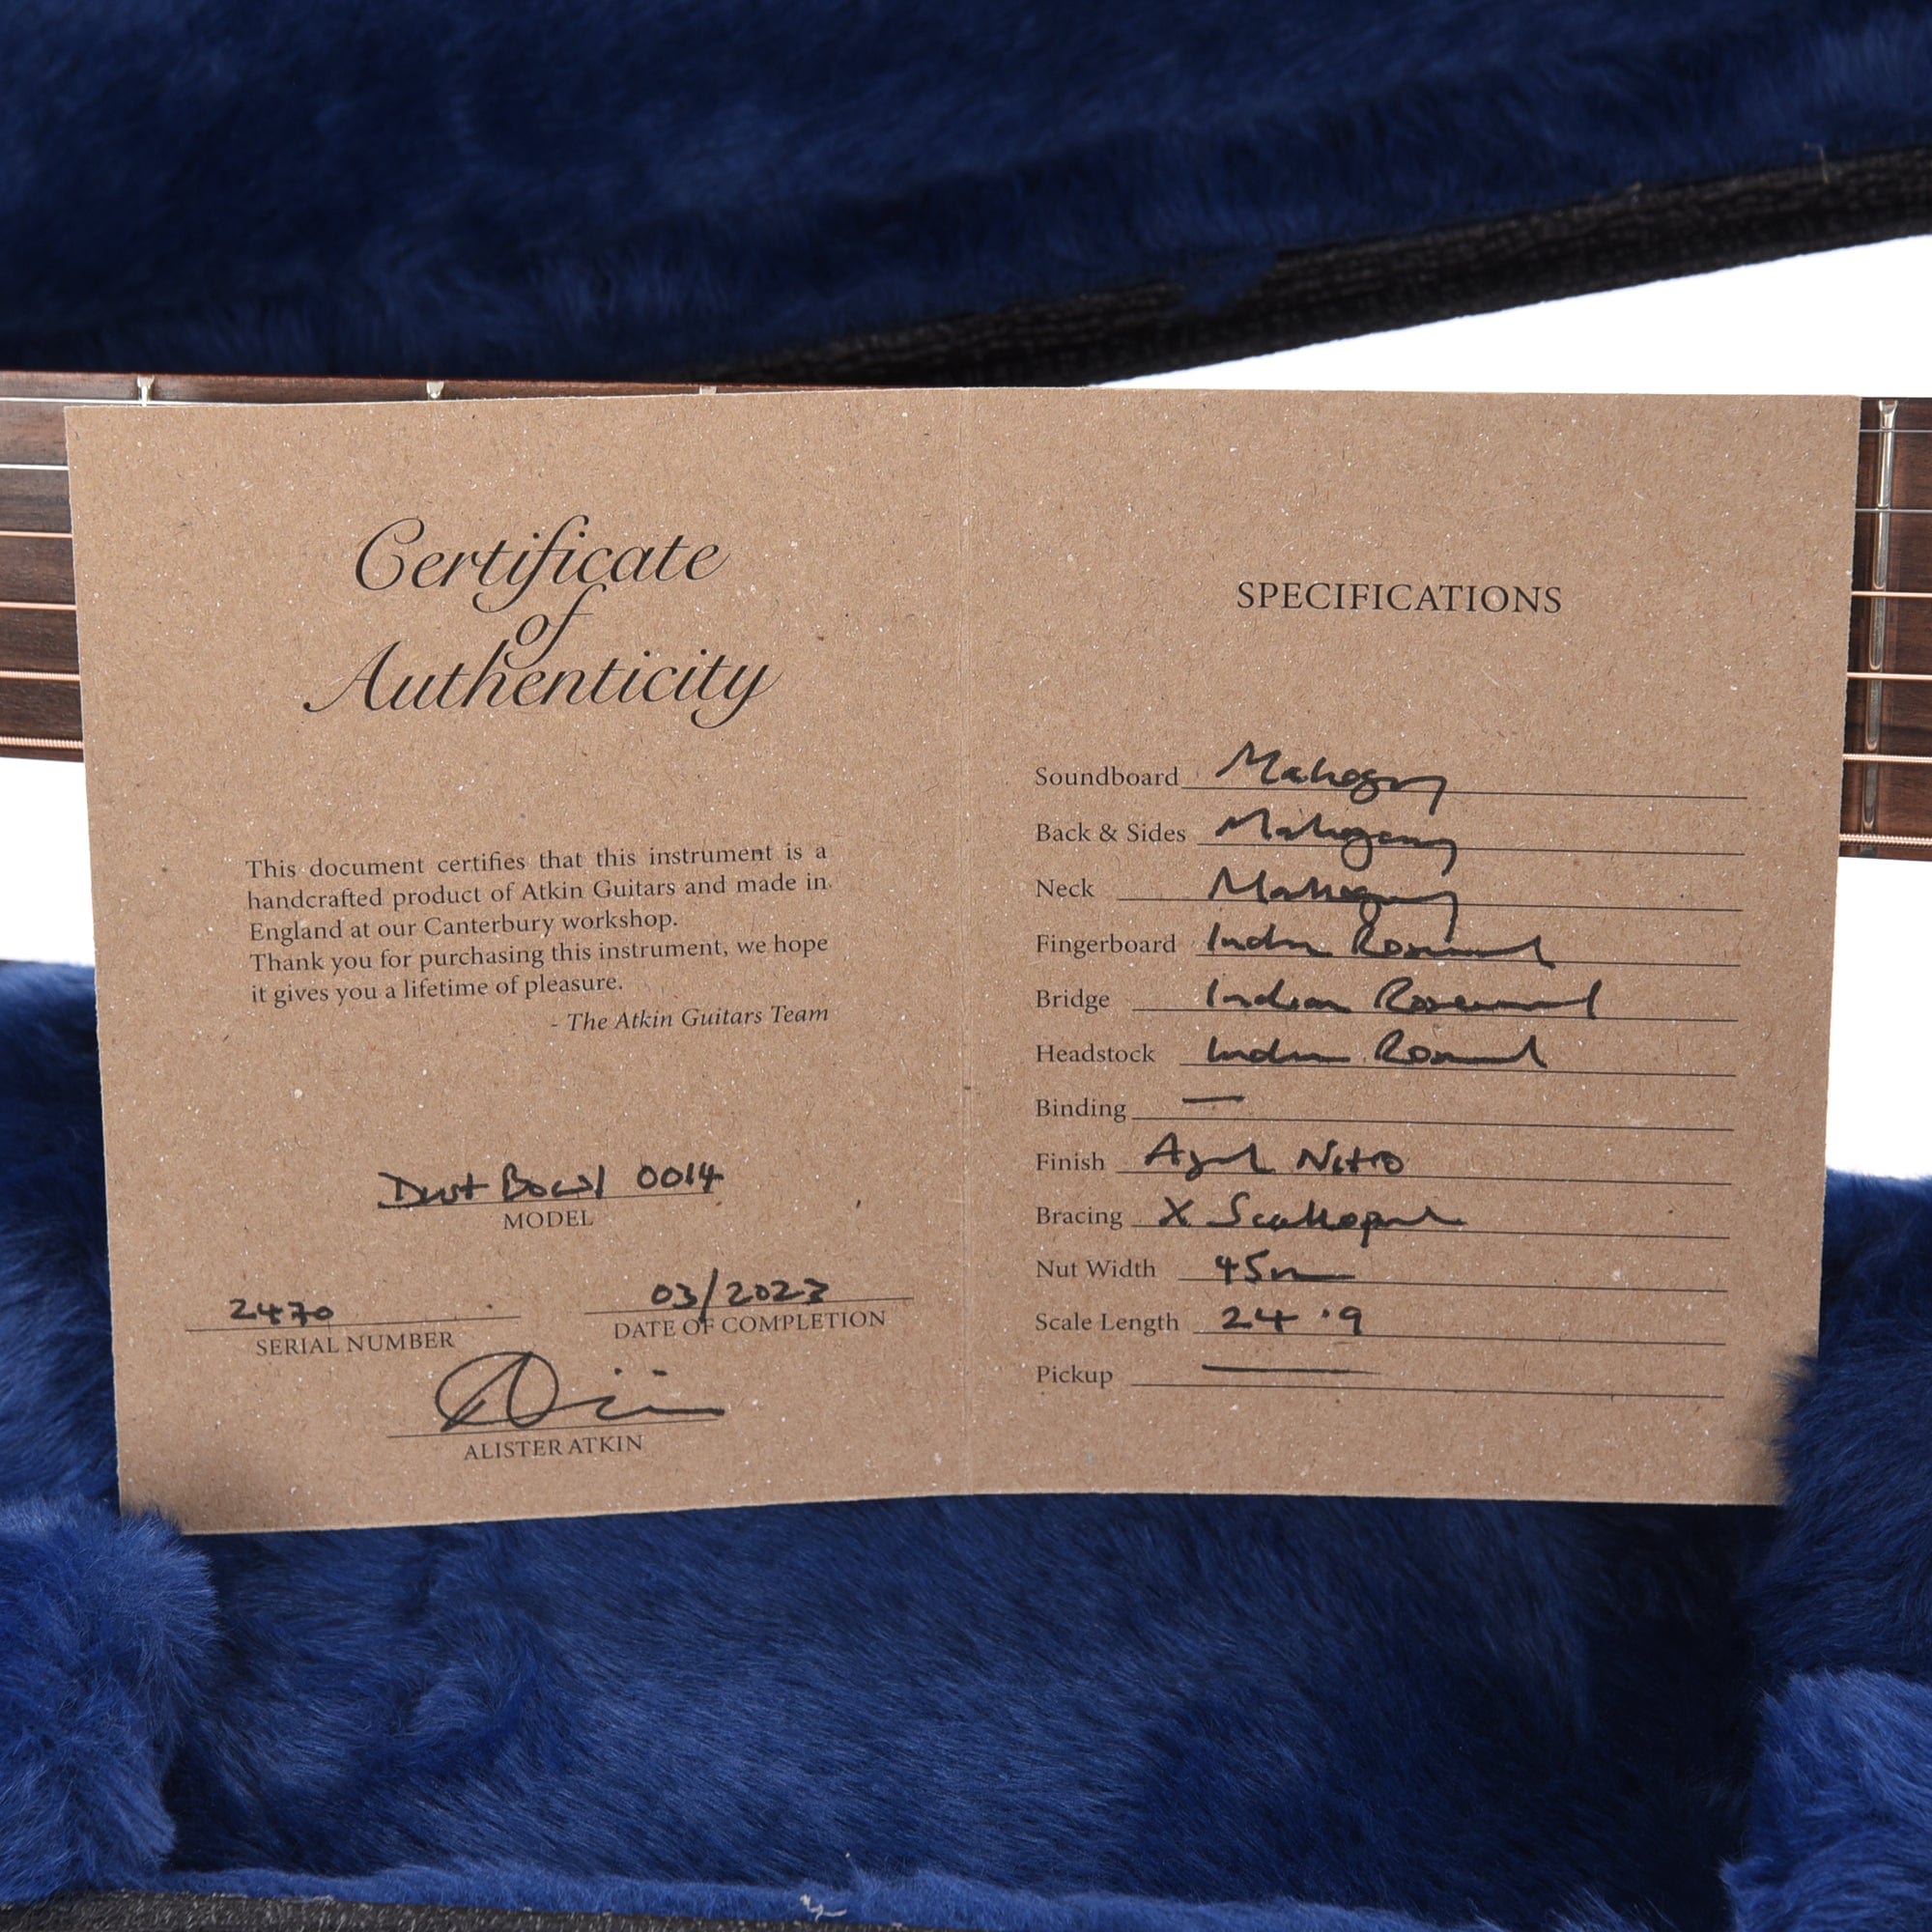 Certificate
of
Authenticity
This document certifies that this instrument is a
handcrafted product of Atkin Guitars and made in
England at our Canterbury workshop.
Thank you for purchasing this instrument, we hope
it gives you a lifetime of pleasure.
- The Atkin Guitars Team
Dust Bowl 0014
MODEL
2470
SERIAL NUMBER
03/2023
DATE OF COMPLETION
ALISTER ATKIN
SPECIFICATIONS
Soundboard Mahogany
Back & Sides Mahogany
Neck Mahogany
Fingerboard Indian Rosewood
Bridge Indian Rosewood
Headstock Indian Rosewood
Binding —
Finish Aged Nitro
Bracing X Scalloped
Nut Width 45mm
Scale Length 24.9
Pickup —